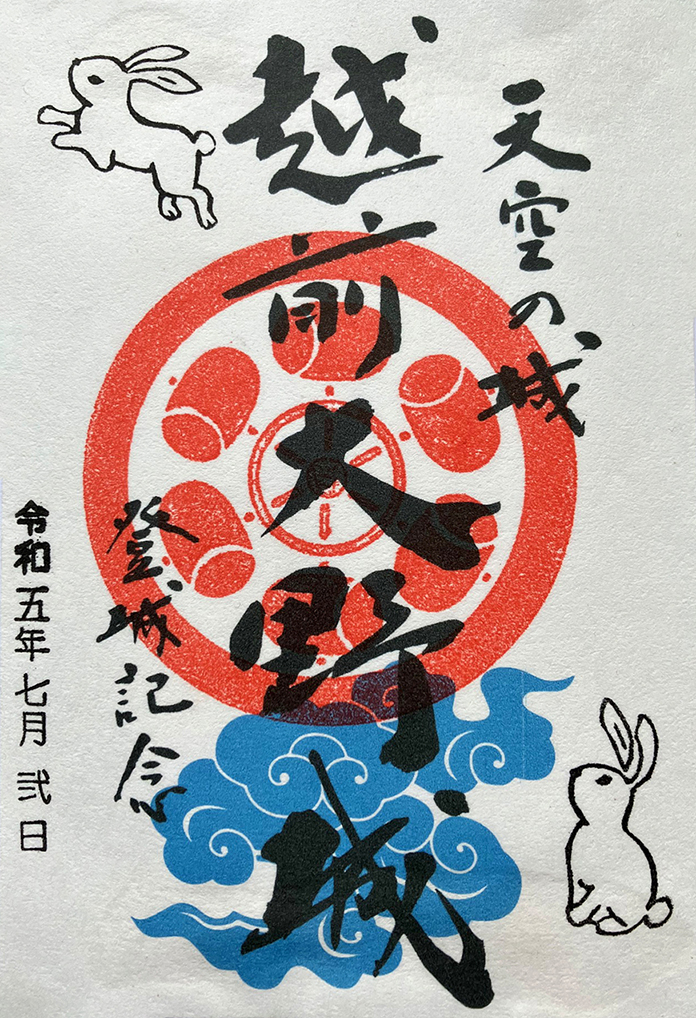 天空の城
越前大野城
登城記念
令和五年七月弐日